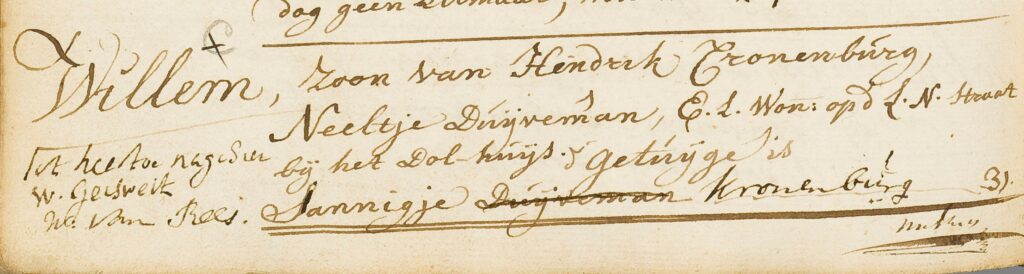 dag geen
Willem, zoon van Hendrik Cronenburg,
Neeltje Duijveman, E. L. Won: opd L. N. Straat
by het Dol-huys. Getuijge is
Jannigje Duijveman Kronenburg 3).
Tot hee toe nagesien
W. Geisweit
van Rees.